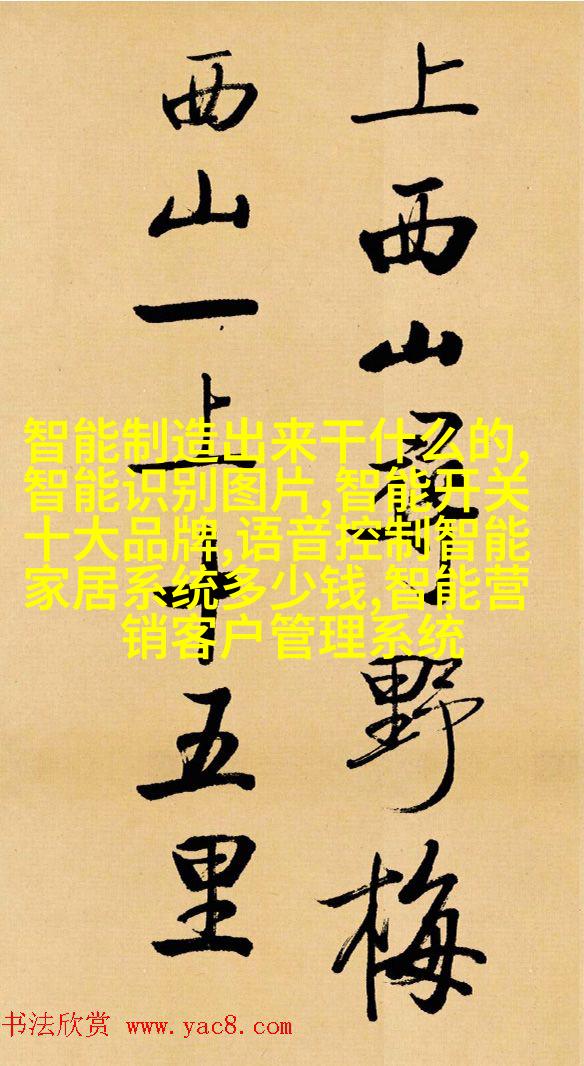 上西山野梅
西山一上十五里
智能制造出来干什么的,
智能识别图片,智能开关
十大品牌,语音控制智能
家居系统多少钱,智能营
销客户管理系统
书法欣赏 www.yac8.com